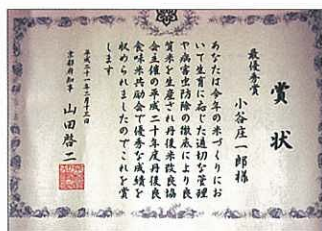 賞状
最優秀賞
小谷庄一郎様
あなたは今年の米づくりにお
いて生育に応じた適切な管理
や病害虫防除の徹底により良
質米を生産され丹後米改良協
会主催の平成二十年度丹後良
食味米共励会で優秀な成績を
収められましたのでこれを賞
します
平成二十一年二月十三日
京都府知事 山田啓二